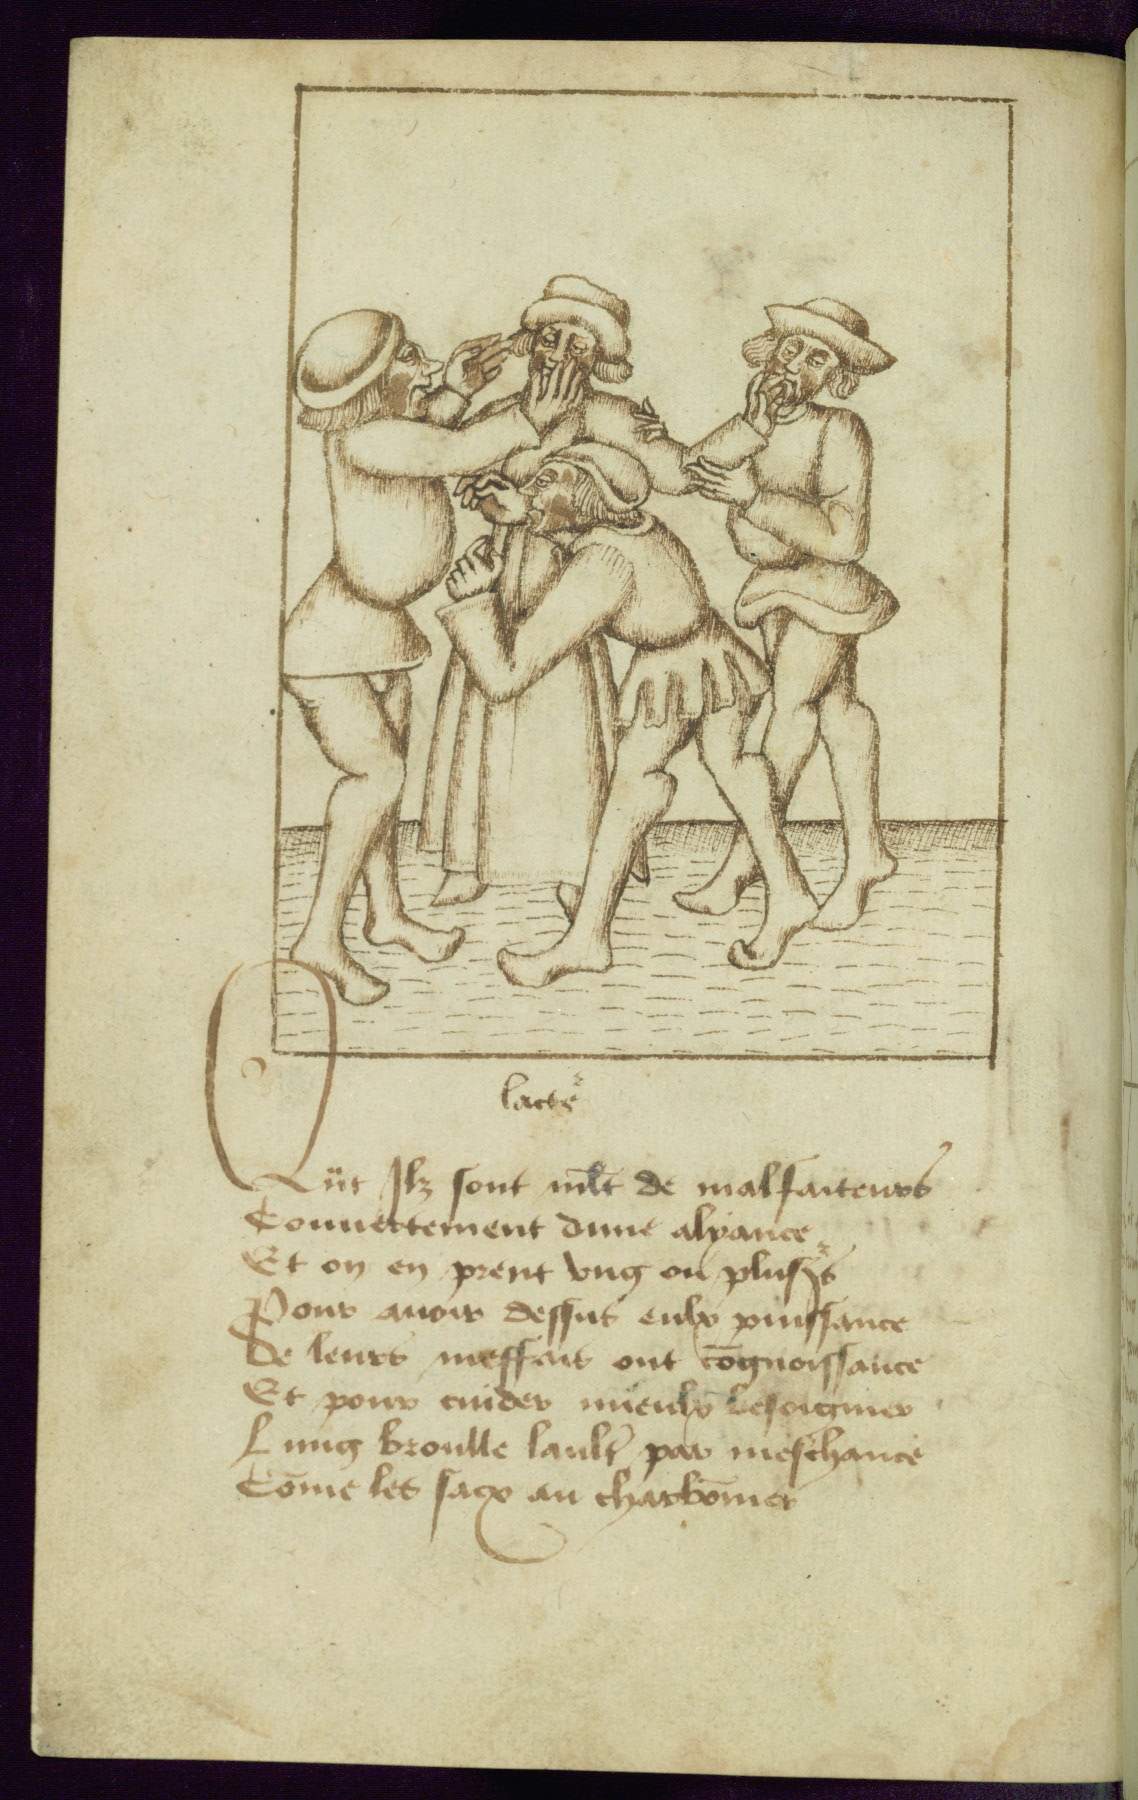 lacte᷑
Qūt Ilz sont ml̄t de malfaiteurs
Couuertement dune alyance
Et on en prent vng ou plusʳs
Pour auoir dessus eulx puissance
De leurs meffais ont cōgnoissance
Et pour cuider mieulx besoigner
Lung broulle laultr̄ par meschance
Cōme les sacx au charbōnier